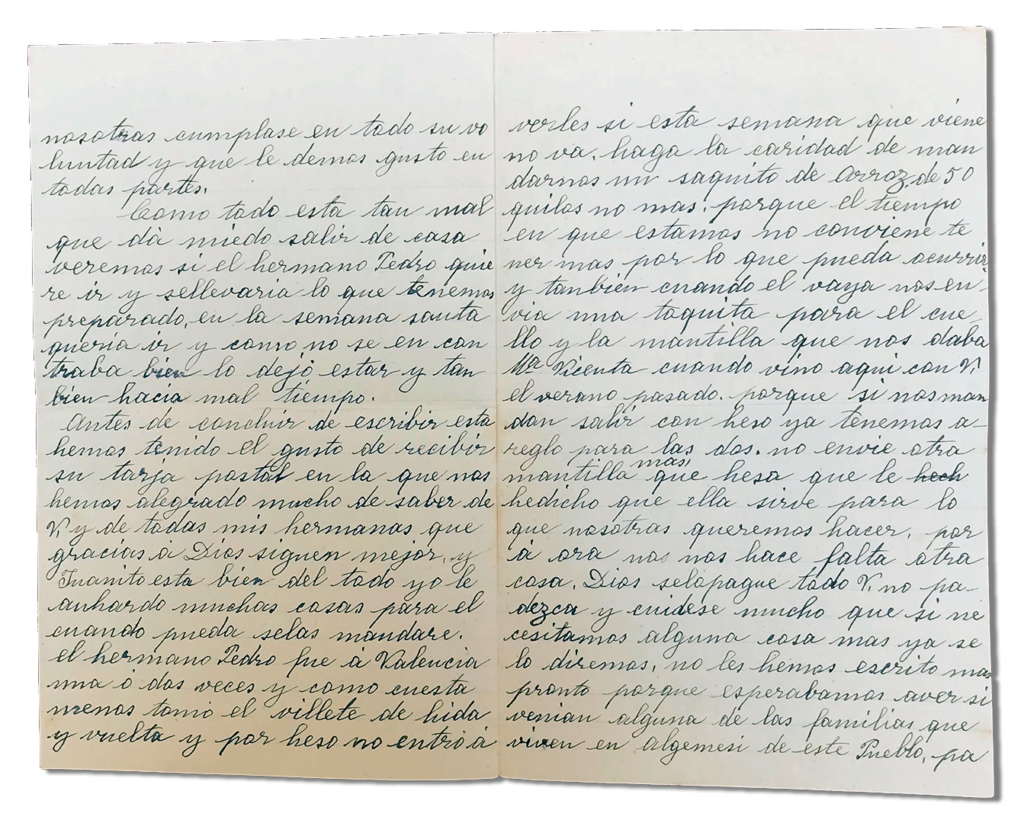 nosotras cumplase en todo su vo
luntad y que le demos gusto en
todas partes.
Como todo esta tan mal
que dà miedo salir de casa
veremos si el hermano Pedro quie
re ir y sellevaria lo que tenemos
preparado, en la semana santa
queria ir y como no se en con
traba bien lo dejó estar y tan
bien hacia mal tiempo.
Antes de concluir de escribir esta
hemos tenido el gusto de recibir
su tarja postal en la que nos
hemos alegrado mucho de saber de
V. y de todas mis hermanas que
gracias à Dios siguen mejor, y
Juanito esta bien del todo yo le
auhardo muchas cosas para el
cuando pueda selas mandare.
el hermano Pedro fue à Valencia
una ó dos veces y como cuesta
menos tomó el villete de hida
y vuelta y por heso no entró à
verles si esta semana que viene
no va. haga la caridad de man
darnos un saquito de arroz de 50
quilos no mas. porque el tiempo
en que estamos no conviene te
ner mas por lo que pueda ocurrir,
y tanbien cuando el vaya nos en-
via una toquita para el cue-
llo y la mantilla que nos daba
Mª Vicenta cuando vino aqui con V.
el verano pasado. porque si nos man
dan salir con heso ya tenemos a-
reglo para las dos. no envie otra
mantilla mas, que hesa que le hech
hedicho que ella sirve para lo
que nosotras queremos hacer, por
à ora nos nos hace falta otra
cosa. Dios selopague todo V. no pa-
dezca y cuidese mucho que si ne
cesitamos alguna cosa mas ya se
lo diremos, no les hemos escrito mas
pronto porque esperabamos aver si
venian alguna de las familias que
viven en Algemesi de este Pueblo, pa